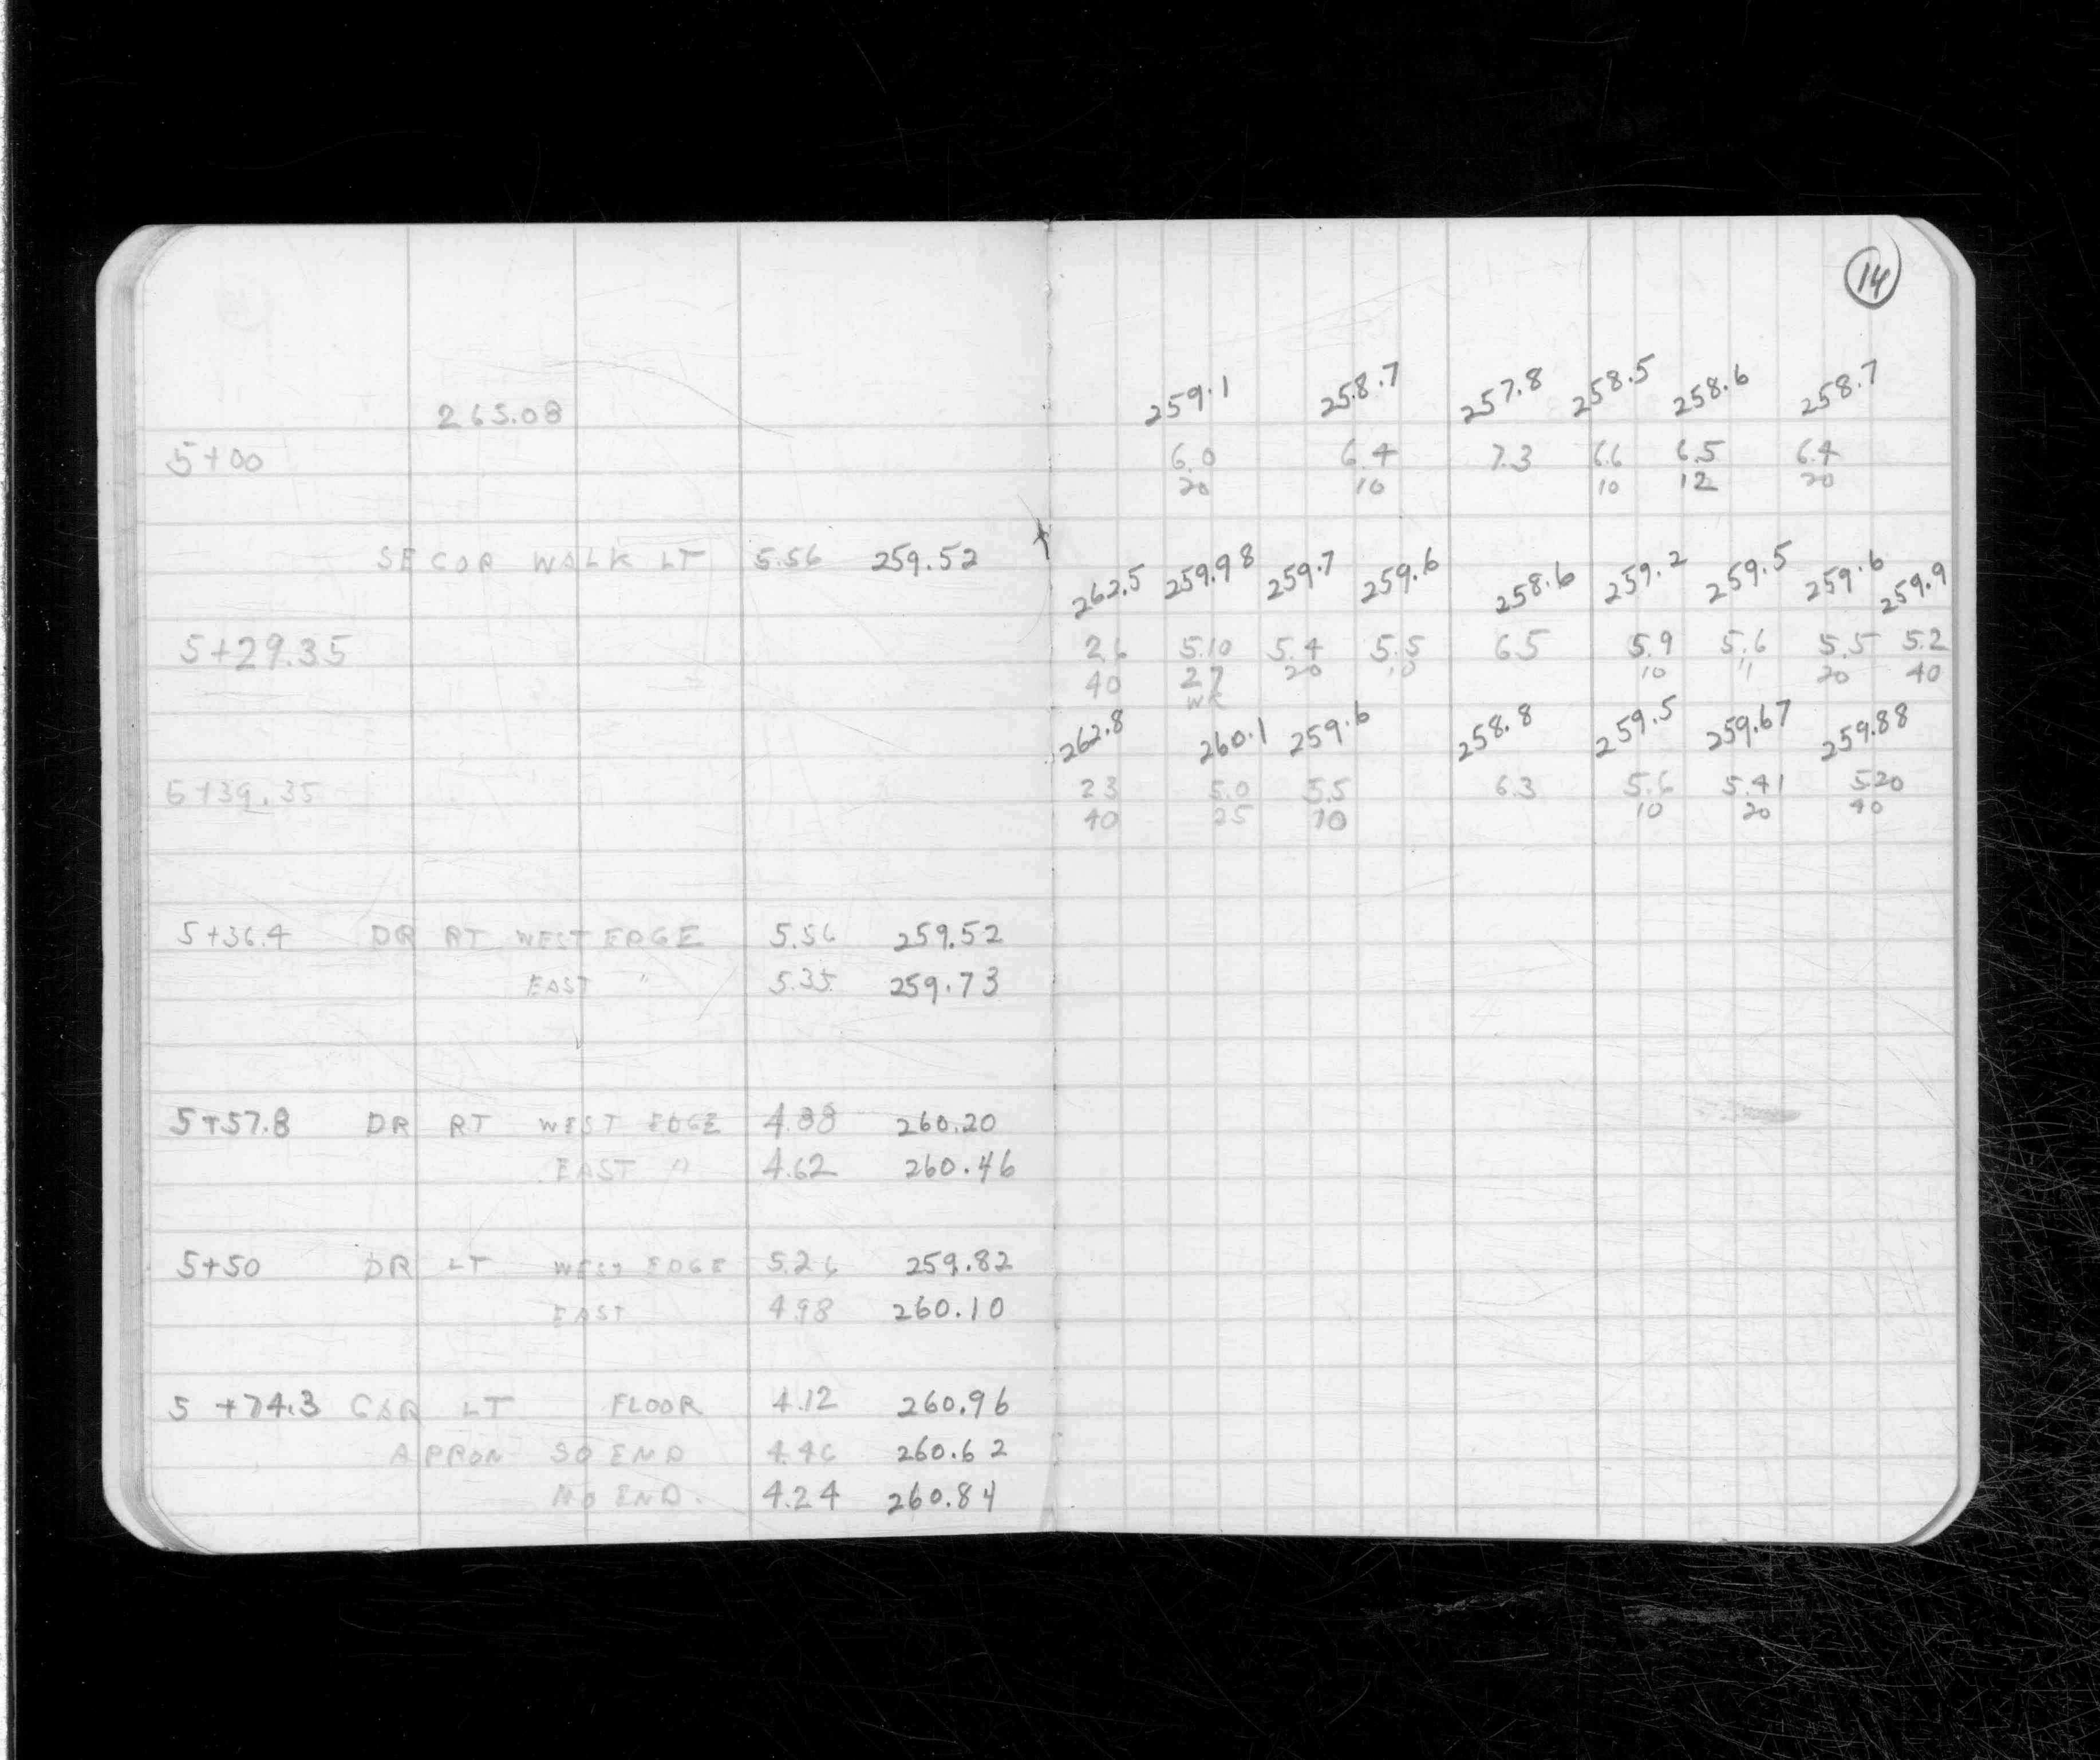 14
265.08
5+00
SE COR WALK LT 5.56 259.52
5+29.35
5+39.35
5+36.4 DR RT WEST EDGE 5.56 259.52
EAST " 5.35 259.73
5+57.8 DR RT WEST EDGE 4.88 260.20
EAST " 4.62 260.46
5+50 DR LT WEST EDGE 5.26 259.82
EAST 4.98 260.10
5+74.3 GAR LT FLOOR 4.12 260.96
APPRON SO END 4.46 260.62
NO END. 4.24 260.84
259.1 258.7 257.8 258.5 258.6 258.7
6.0 6.4 7.3 6.6 6.5 6.4
20 10 10 12 20
262.5 259.98 259.7 259.6 258.6 259.2 259.5 259.6 259.9
2.6 5.10 5.4 5.5 6.5 5.9 5.6 5.5 5.2
40 27 20 10 10 11 20 40
WK
262.8 260.1 259.6 258.8 259.5 259.67 259.88
2.3 5.0 5.5 6.3 5.6 5.41 5.20
40 25 10 10 20 40